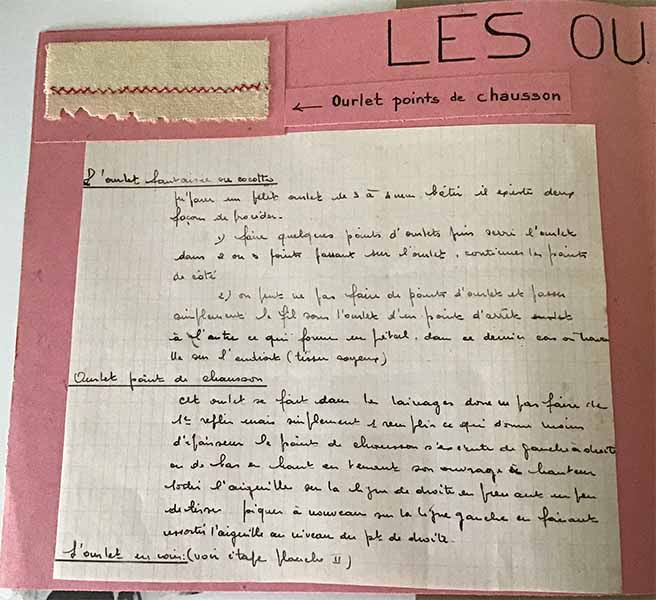 LES OU
← Ourlet points de chausson
L'ourlet fantaisie ou cocotte
préparer un petit ourlet de 3 à 4 mm bâti il existe deux
façon de procéder.
1) faire quelques points d'ourlets puis serré l'ourlet
dans 2 ou 3 points passant sur l'ourlet, continuer les points
de côté
2) on peut ne pas faire de points d'ourlet et passer
simplement le fil sous l'ourlet d'un point d'arrêt
à l'autre ce qui forme un pétal, dans ce dernier cas on travai
lle sur l'endroit (tissu soyeux)
Ourlet point de chausson
cet ourlet se fait dans le lainages donc ne pas faire de
1er replis mais simplement 1 remplis ce qui donne moins
d'épaisseur le point de chausson s'exécute de gauche à droite
ou de bas en haut en tenant son ouvrage à hauteur
l'aiguille sur la ligne de droite en prenant un peu
de tissu. piquer à nouveau sur la ligne gauche en faisant
ressortir l'aiguille au niveau du pt de droite.
L'ourlet en coin: (voir étape planche II)